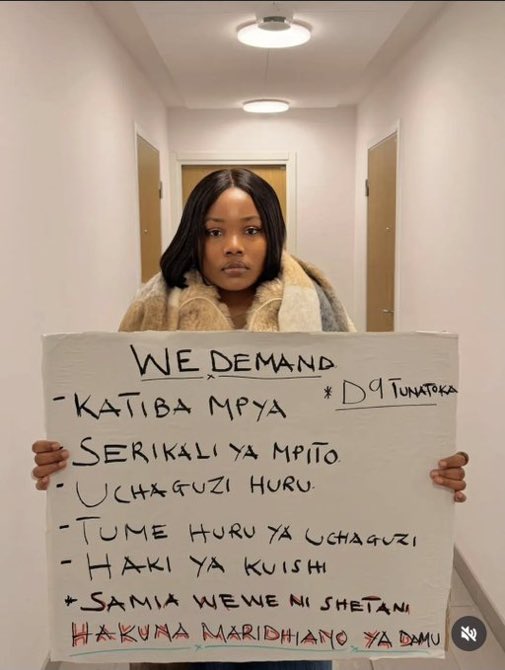 WE DEMAND
- KATIBA MPYA
* D9 TUNATOKA
- SERIKALI YA MPITO
- UCHAGUZI HURU
- TUME HURU YA UCHAGUZI
- HAKI YA KUISHI
* SAMIA WEWE NI SHETANI
HAKUNA MARIDHIANO YA DAMU